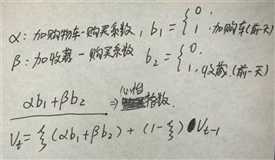 α: 加购物车-购买系数, b₁ = { 0. 1. 加购车(前一天)
β: 加收藏-购买系数 b₂ = { 0. 1. 收藏(前一天)
αb₁+βb₂ ⇒ 心怕 指数.
Vt = ξ(αb₁+βb₂) + (1-ξ) Vt-1